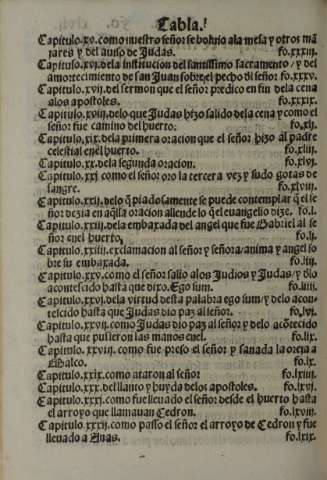 Tabla.
Capitulo.xv. como nuestro señor se boluio ala mesa y otros mā
jares y del auiso de Judas. fo.xxxiij.
Capituso.xvj. dela institucion del santissimo sacramento / y del
amortecimiento de san Juan sobre el pecho dl señor fo.xxxv.
Capitulo.xvij. del sermon que el señor predico en fin dela cena
alos apostoles. fo.xxxix.
Capitulo.xviij. delo que Judas hizo salido dela cena y como el
señor fue camino del huerto: fo.xlj.
Capitulo.xix. dela primera oracion que el señor hizo al padre
celestial enel huerto. fo.xliij.
Capitulo.xx. dela segunda oracion. fo.xlvj.
Capitulo.xxj como el señor oro la tercera vez y sudo gotas de
sangre. fo.xlviij.
Capitulo.xxij. delo q̄ piadosamente se puede contemplar q̄ el se
ñor dezia en aq̄lla oracion allende lo q̄ el euangelio dize. fo.l.
Capitulo.xxiij. dela embaxada del angel que fue Gabriel al se
ñor enel huerto, fo.lj.
Capitulo.xxiiij. exclamacion al señor y señora / anima y angel so
bre su embaxada. fo.liij.
Capitulo.xxv. como el señor salio alos Judios y Judas / y dlo
acontescido hasta que dixo. Ego sum. fo.liiij.
Capitulo.xxvj. dela virtud desta palabra ego sum / y delo acon-
tescido hasta que Judas dio paz al señor. fo.lvj.
Capitulo.xxvij. como Judas dio paz al señor y delo acōtecido
hasta que pusieron las manos enel. fo.lix.
Capitulo.xxviij. como fue preso el señor y sanada la oreja a
Malco. fo.lx.
Capitulo.xxix. como ataron al señor fo.lxiij.
Capitulo.xxx. del llanto y huyda delos apostoles. fo.lxvj.
Capitulo.xxxj. como fue lleuado el señor desde el huerto hasta
el arroyo que llamauan Cedron. fo.lxviij.
Capitulo.xxxij. como passo el señor el arroyo de Cedron y fue
lleuado a Anas. fo.lxix.